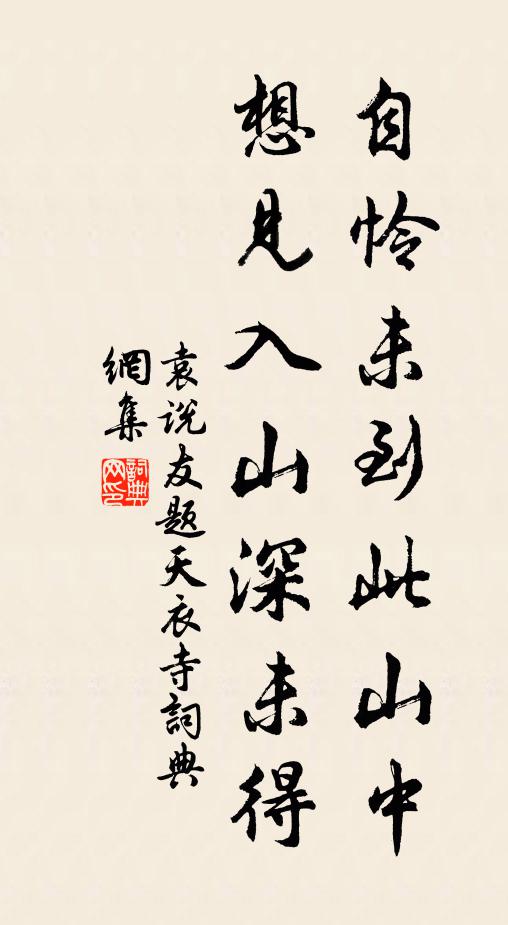 自怜未到此山中
想見入山深未得
袁说友题天衣寺詞典
網集
詞典
网印